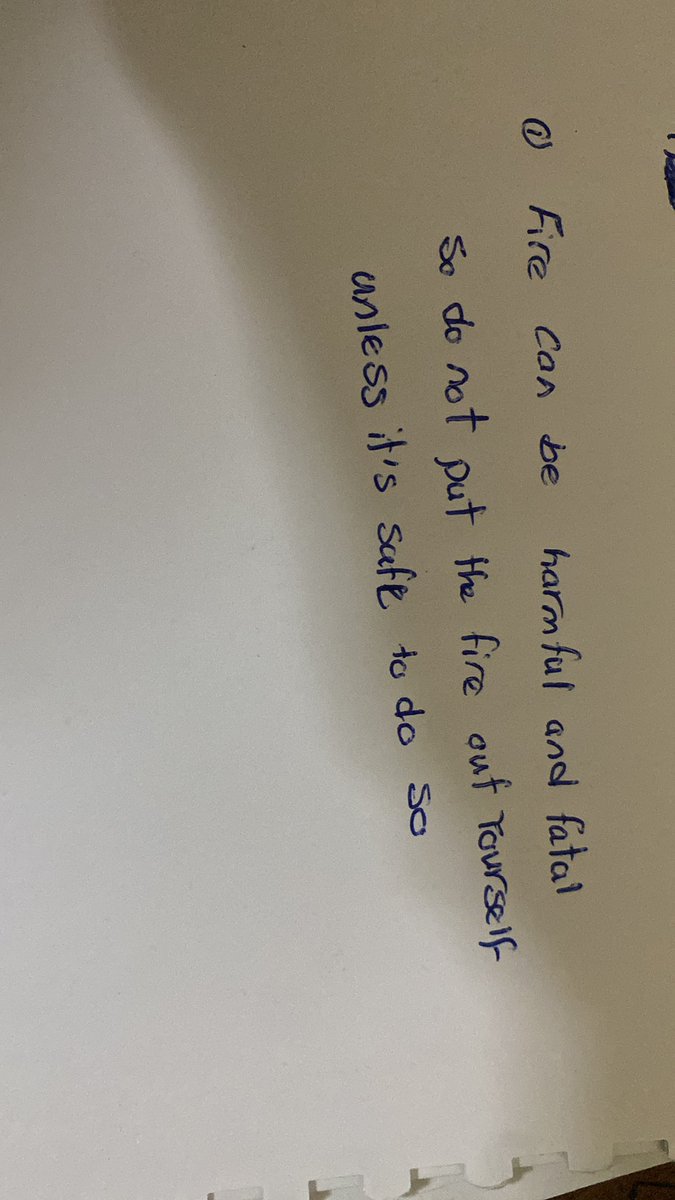 ① Fire can be harmful and fatal
So do not put the fire out Yourself
unless it's safe to do so